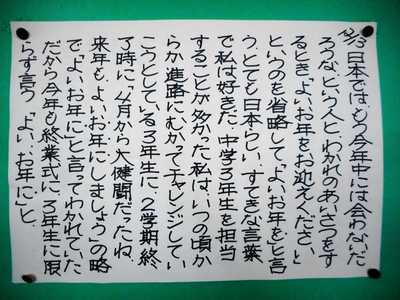 12/13 日本では、もう今年中には会わないだ
ろうな、という人と、わかれのあいさつをす
るとき「よいお年をお迎えください」
というのを省略して「よいお年を」と言
う。とても日本らしい、すてきな言葉
で私は好きだ。中学3年生を担当
することが多かった私は、いつの頃か
らか進路にむかってチャレンジしてい
こうとしている3年生に、2学期終
了時に「4月から大健闘だったね。
来年も、よいお年にしましょう」の略
で「よいお年に」と言ってわかれていた。
だから今年も終業式に、3年生に限
らず言う「よい、お年に」と。